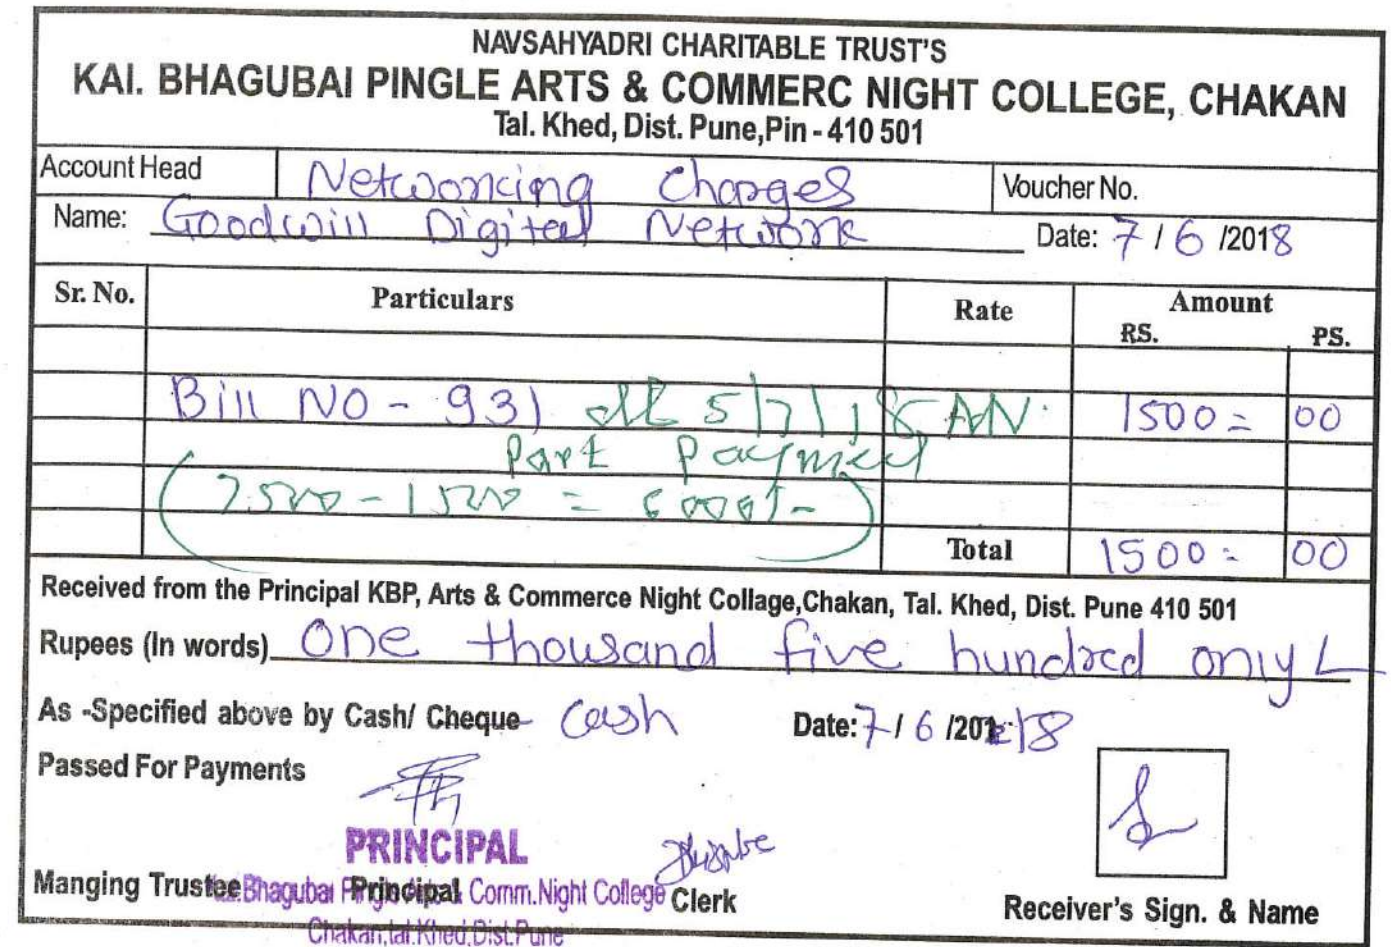 NAVSAHYADRI CHARITABLE TRUST'S
KAI. BHAGUBAI PINGLE ARTS & COMMERC NIGHT COLLEGE, CHAKAN
Tal. Khed, Dist. Pune,Pin - 410 501
Account Head Networking Charges Voucher No.
Name: Goodwill Digital Network Date: 7 / 6 /2018
Sr. No. Particulars Rate Amount
RS. PS.
Bill NO - 931 dt 5/7/18 1500 = 00
Part Payment
(7500 - 1500 = 6000/-)
Total 1500 = 00
Received from the Principal KBP, Arts & Commerce Night Collage,Chakan, Tal. Khed, Dist. Pune 410 501
Rupees (In words) One thousand five hundred only
As -Specified above by Cash/ Cheque Cash Date: 7 / 6 /201 18
Passed For Payments
PRINCIPAL
Manging Trustee Principal Clerk
Bhagubai Comm.Night College
Chakan,tal.Khed,Dist.Pune
Receiver's Sign. & Name